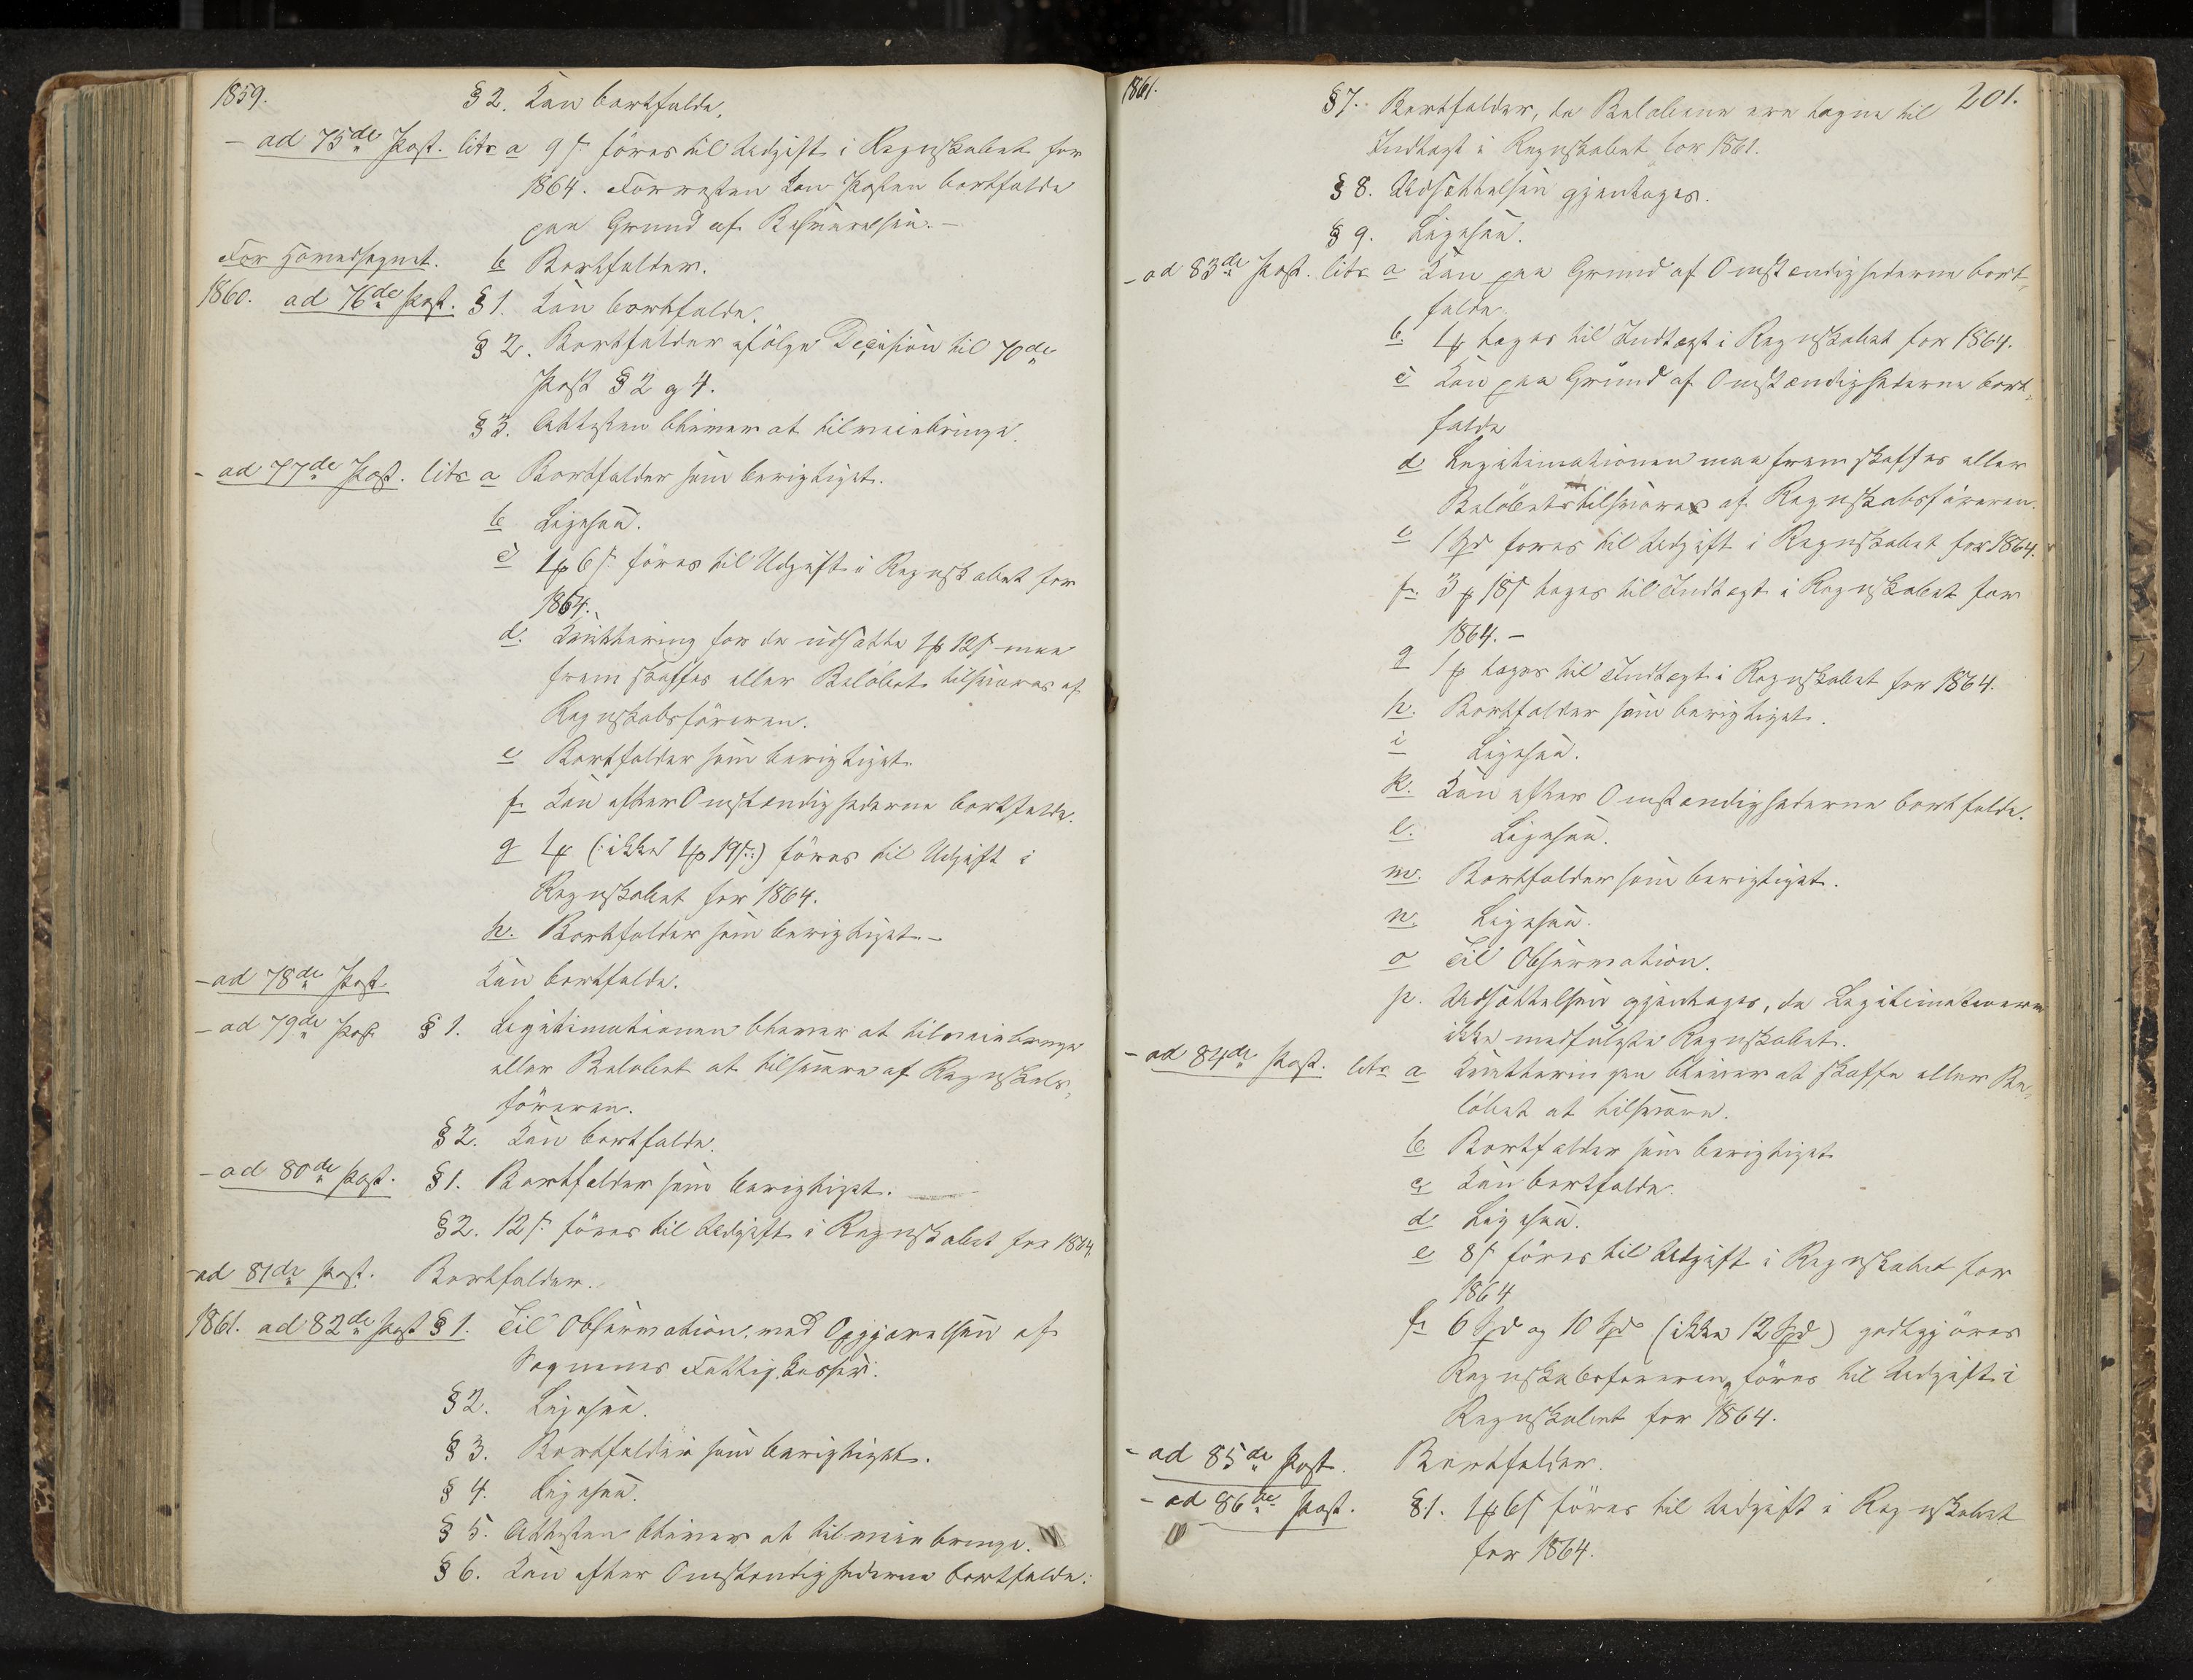 1859.
§ 2. Kan bortfalde.
- ad 75de Post. litr a 9 s föres til Udgift i Regnskabet for
1864. Forresten kan Posten bortfalde
paa Grund af Besvarelsen. -
For Hovedsognet. b Bortfalder.
1860. ad 76de Post. § 1. Kan bortfalde.
§ 2. Bortfalder ifölge Decision til 70de
Post § 2 og 4.
§ 3. Attesten bliver at tilveiebringe.
- ad 77de Post. litr a Bortfalder som berigtiget.
b Ligesaa.
c 1 ƥ 6 s föres til Udgift i Regnskabet for
1864.
d. Qvittering for de udsatte 1 ƥ 12 s maa
fremskaffes eller Belöbet tilsvares af
Regnskabsföreren.
e Bortfalder som berigtiget.
f. Kan efter Omstændighederne bortfalde.
g 4 ƥ (: ikke 4 ƥ 19 s :) föres til Udgift i
Regnskabet for 1864.
h. Bortfalder som berigtiget. -
- ad 78de Post Kan bortfalde.
- ad 79de Post § 1. Legitimationen bliver at tilveiebringe
eller Beløbet at tilsvare af Regnskabs-
föreren.
§ 2. Kan bortfalde.
- ad 80de Post. § 1. Bortfalder som berigtiget.
§ 2. 12 s föres til Udgift i Regnskabet for 1864.
- ad 81de Post. Bortfalder.
1861. ad 82de Post § 1. Til Observation ved Opgjørelsen af
Sognenes Fattigkasser.
§ 2. Ligesaa.
§ 3. Bortfalder som berigtiget.
§ 4. Ligesaa.
§ 5. Attesten bliver at tilveiebringe.
§ 6. Kan efter Omstændighederne bortfalde.
1861.
201.
§ 7. Bortfalder, da Beløbene ere tagne til
Indtægt i Regnskabet for 1861.
§ 8. Udsættelsen gjentages.
§ 9. Ligesaa.
- ad 83de Post. litr a Kan paa Grund af Omstændighederne bort-
falde.
b. 4 ƥ tages til Indtægt i Regnskabet for 1864.
c Kan paa Grund af Omstændighederne bort-
falde
d Legitimationen maa fremskaffes eller
Belöbet tilsvares af Regnskabsföreren.
e 1 Spd föres til Udgift i Regnskabet for 1864.
f. 3 ƥ 18 s tages til Indtægt i Regnskabet for
1864. -
g 1 ƥ tages til Indtægt i Regnskabet for 1864.
h. Bortfalder som berigtiget.
i Ligesaa.
k. Kan efter Omstændighederne bortfalde.
l. Ligesaa.
m. Bortfalder som berigtiget.
n. Ligesaa.
o Til Observation.
p. Udsættelsen gjentages, da Legitimationerne
ikke medfulgte Regnskabet.
- ad 84de Post. litr a Qvitteringen bliver at skaffe eller Be-
löbet at tilsvare.
b Bortfalder som berigtiget
c Kan bortfalde.
d Ligesaa.
e 8 s föres til Udgift i Regnskabet for
1864
f. 6 Spd og 10 Spd (ikke 12 Spd) godtgjöres
Regnskabsföreren, föres til Udgift i
Regnskabet for 1864.
- ad 85de Post. Bortfalder.
- ad 86de Post. § 1. 1 ƥ 6 s föres til Udgift i Regnskabet
for 1864.